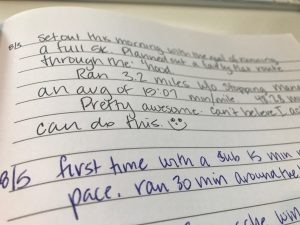 8/5 set out this morning with the goal of running
a full 5K. Planned out a lofty route
through the 'hood.
Ran 3.2 miles w/o stopping
an avg of 15:07 min/mile
Pretty awesome. Can't believe I
can do this.
8/5 first time with a sub 15 min
pace. ran 30 min around the